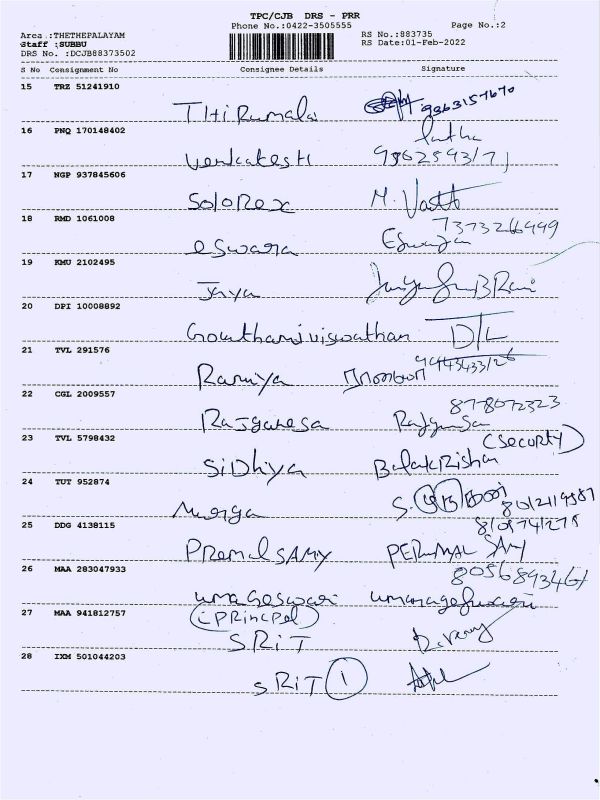 TPC/CJB DRS - PRR
Phone No.:0422-3505555 Page No.:2
Area :THETHEPALAYAM RS No.:883735
Staff :SUBBU RS Date:01-Feb-2022
DRS No. :DCJB88373502
S No Consignment No Consignee Details Signature
15 TRZ 51241910
THiRumala 9363157670
16 PNQ 170148402
latha
venkatesH
17 NGP 937845606
SoloRex M. Vastt
18 RMD 1061008
7373266999
eswara
19 KMU 2102495
Jaya
20 DPI 10008892
Gowthamiviswathan D/L
21 TVL 291576
Ramya
22 CGL 2009557
8778072323
RajGanesa
23 TVL 5798432
(Security)
SiDhiya BalakRishna
24 TUT 952874
Murga S.
25 DDG 4138115
PRemalSAMY PERUMAL SAMY
26 MAA 283047933
umageswari
27 MAA 941812757
(Principel)
SRiT
28 IXM 501044203
SRiT 1